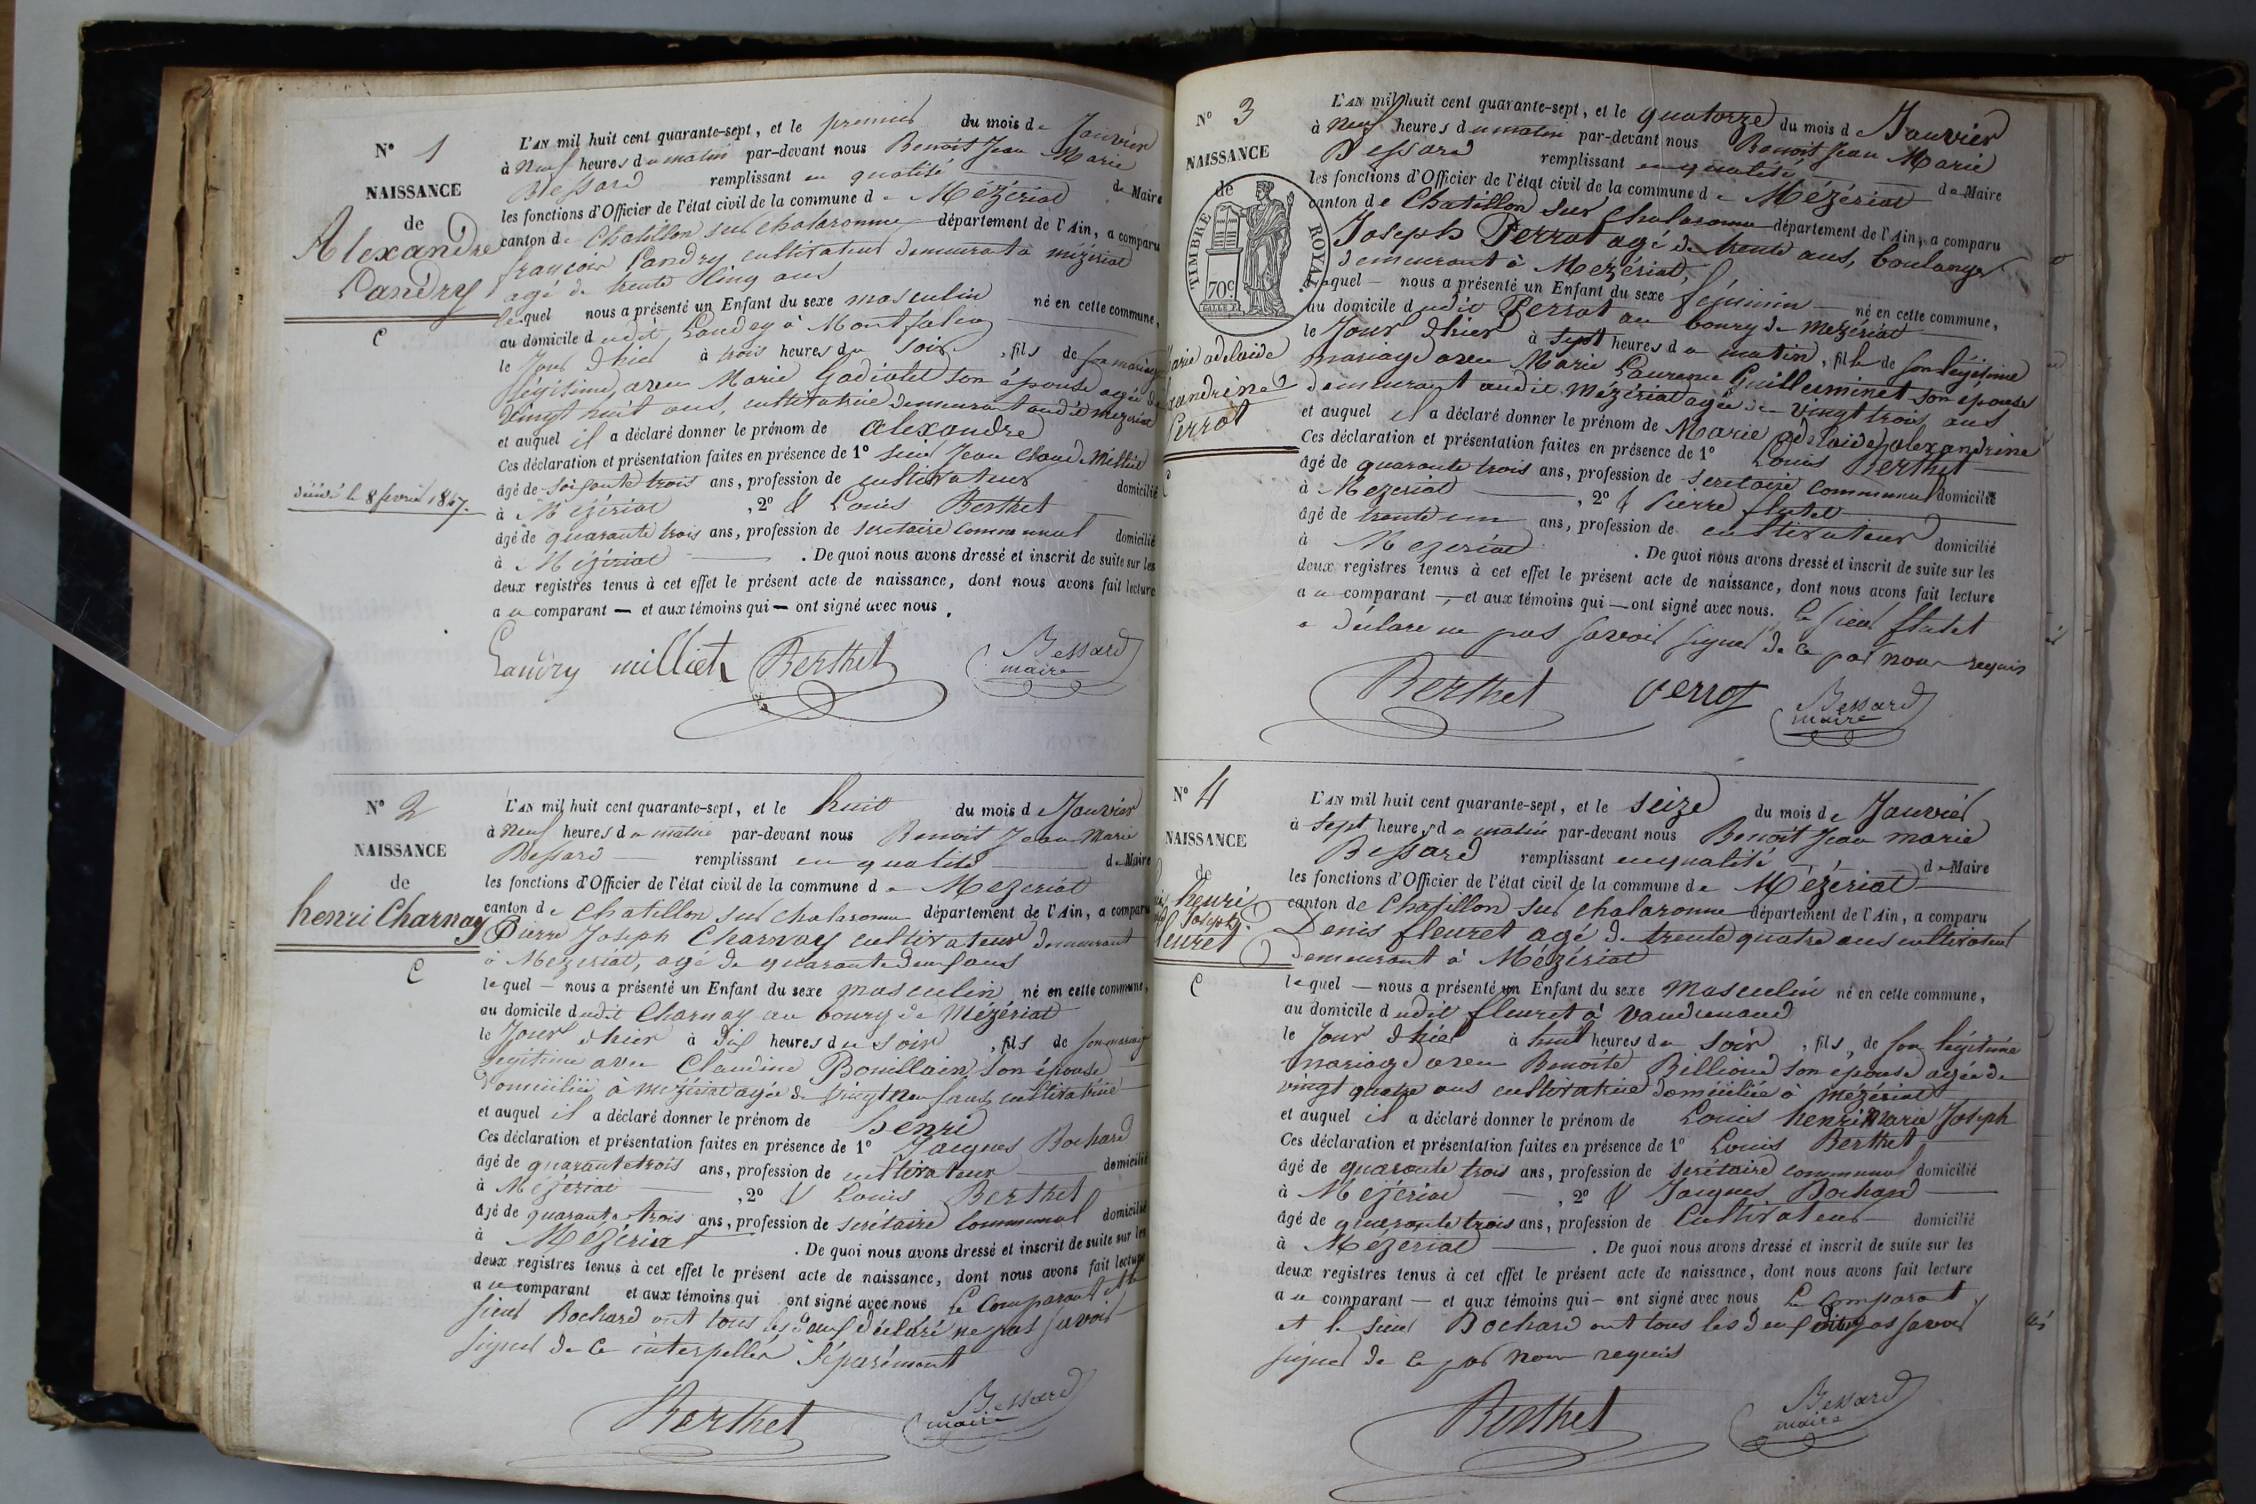 N° 1
NAISSANCE
de
Alexandre
Landry
C
décédé le 8 fevrier 1847.
L'AN mil huit cent quarante-sept, et le premier du mois de Janvier
à Neuf heures du matin par-devant nous Benoit Jean Marie
Bessard remplissant en qualité de Maire
les fonctions d'Officier de l'état civil de la commune de Mézériat
canton de Chatillon sur chalaronne département de l'Ain, a comparu
françois Landry cultivateur demeurant à mézériat
agé de trente cinq ans
lequel nous a présenté un Enfant du sexe masculin né en cette commune,
au domicile dudit Landry à Montfalcon
le Jour d'hier à trois heures du soir, fils de son mariage
légitime avec Marie Gadiolet son épouse agée de
vingt huit ans, cultivatrice demeurant audit mezeriat
et auquel il a déclaré donner le prénom de alexandre
Ces déclaration et présentation faites en présence de 1° sieur Jean Claude Milliet
âgé de soixante trois ans, profession de cultivateur domicilié
à Mézériat, 2° & Louis Berthet
âgé de quarante trois ans, profession de secretaire communal domicilié
à Mézériat. De quoi nous avons dressé et inscrit de suite sur les
deux registres tenus à cet effet le présent acte de naissance, dont nous avons fait lecture
au comparant — et aux témoins qui — ont signé avec nous.
Landry milliet Berthet Bessard
maire
N° 2
NAISSANCE
de
henri Charnay
C
L'AN mil huit cent quarante-sept, et le huit du mois de Janvier
à Neuf heures du matin par-devant nous Benoit Jean Marie
Bessard — remplissant en qualité de Maire
les fonctions d'Officier de l'état civil de la commune de Mezeriat
canton de Chatillon sur chalaronne département de l'Ain, a comparu
Pierre Joseph Charnay cultivateur demeurant
à Mezeriat, agé de quarante deux ans
lequel — nous a présenté un Enfant du sexe masculin né en cette commune,
au domicile dudit Charnay au bourg de Mézériat
le Jour d'hier à dix heures du soir, fils de son mariage
légitime avec Claudine Bouillain son épouse
domiciliée à mézériat agée de vingt neuf ans, cultivatrice
et auquel il a déclaré donner le prénom de henri
Ces déclaration et présentation faites en présence de 1° Jacques Bochard
âgé de quarante trois ans, profession de cultivateur domicilié
à Mézériat, 2° & Louis Berthet
âgé de quarante trois ans, profession de secrétaire Communal domicilié
à Mézériat. De quoi nous avons dressé et inscrit de suite sur les
deux registres tenus à cet effet le présent acte de naissance, dont nous avons fait lecture
au comparant et aux témoins qui ont signé avec nous Le Comparant et le
sieur Bochard ont tous les deux déclaré ne pas savoir
signer de ce interpellés séparément
Berthet Bessard
maire
N° 3
NAISSANCE
de
TIMBRE ROYAL
70c
Marie adelaide
alexandrine
Perrot
L'AN mil huit cent quarante-sept, et le quatorze du mois de Janvier
à Neuf heures du matin par-devant nous Benoit Jean Marie
Bessard remplissant en qualité de Maire
les fonctions d'Officier de l'état civil de la commune de Mézériat
canton de Chatillon sur chalaronne département de l'Ain, a comparu
Joseph Perrot agé de trente ans, boulanger
demeurant à Mezériat,
lequel — nous a présenté un Enfant du sexe féminin né en cette commune,
au domicile dudit Perrot au bourg de mezériat
le Jour d'hier à sept heures du matin, fille de son légitime
mariage avec Marie Laurence Guilleminet son épouse
demeurant audit Mézériat agée de vingt trois ans
et auquel il a déclaré donner le prénom de Marie adelaide alexandrine
Ces déclaration et présentation faites en présence de 1° Louis Berthet
âgé de quarante trois ans, profession de secretaire communal domicilié
à Mezeriat, 2° & Pierre flutet
âgé de trente un ans, profession de cultivateur domicilié
à Mezeriat. De quoi nous avons dressé et inscrit de suite sur les
deux registres tenus à cet effet le présent acte de naissance, dont nous avons fait lecture
au comparant — et aux témoins qui — ont signé avec nous. Le sieur flutet
a déclaré ne pas savoir signer de ce par nous requis
Berthet perrot Bessard
maire
N° 4
NAISSANCE
de
henri
Joseph
fleuret
C
L'AN mil huit cent quarante-sept, et le seize du mois de Janvier
à sept heures du matin par-devant nous Benoit Jean marie
Bessard remplissant en qualité de Maire
les fonctions d'Officier de l'état civil de la commune de Mézériat
canton de Chatillon sur chalaronne département de l'Ain, a comparu
Denis fleuret agé de trente quatre ans cultivateur
demeurant à Mézériat
lequel — nous a présenté un Enfant du sexe masculin né en cette commune,
au domicile dudit fleuret à
le Jour d'hier à huit heures du soir, fils, de son légitime
mariage avec Benoite Billioud son epouse agée de
vingt quatre ans cultivatrice domiciliée à mézériat
et auquel il a déclaré donner le prénom de Louis henri Marie Joseph
Ces déclaration et présentation faites en présence de 1° Louis Berthet
âgé de quarante trois ans, profession de secrétaire communal domicilié
à Mézériat — , 2° & Jacques Bochard
âgé de quarante trois ans, profession de Cultivateur domicilié
à Mézériat. De quoi nous avons dressé et inscrit de suite sur les
deux registres tenus à cet effet le présent acte de naissance, dont nous avons fait lecture
au comparant — et aux témoins qui — ont signé avec nous Le Comparant
et le sieur Bochard ont tous les deux dit ne pas savoir
signer de ce par nous requis
Berthet Bessard
maire